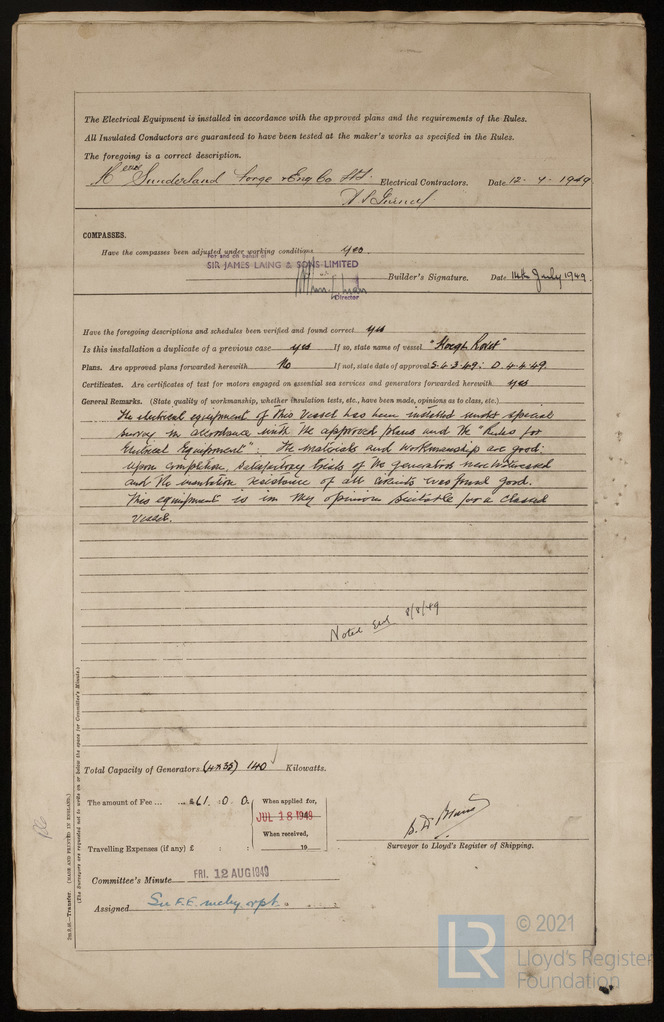 The Electrical Equipment is installed in accordance with the approved plans and the requirements of the Rules.
All Insulated Conductors are guaranteed to have been tested at the maker's works as specified in the Rules.
The foregoing is a correct description.
Sunderland Forge & Eng Co Ltd. Electrical Contractors. Date 12. 7. 1949
COMPASSES.
Have the compasses been adjusted under working conditions yes.
For and on behalf of
SIR JAMES LAING & SONS LIMITED
Builder's Signature. Date 14th July 1949.
Director
Have the foregoing descriptions and schedules been verified and found correct yes
Is this installation a duplicate of a previous case yes If so, state name of vessel "Hoegh
Plans. Are approved plans forwarded herewith No If not, state date of approval S. 4.3.49; D. 4.4.49.
Certificates. Are certificates of test for motors engaged on essential sea services and generators forwarded herewith yes
General Remarks. (State quality of workmanship, whether insulation tests, etc., have been made, opinions as to class, etc.)
The electrical equipment of this vessel has been installed under special
survey in accordance with the approved plans and the "Rules for
Electrical Equipment". The materials and workmanship are good.
Upon completion, satisfactory trials of the generators were witnessed
and the insulation resistance of all circuits was found good.
This equipment is in my opinion suitable for a classed
vessel.
Noted 8/8/49
Total Capacity of Generators (4x35) 140 Kilowatts.
The amount of Fee ... £61 : 0 : 0.
When applied for,
JUL 18 1949
When received,
19
Travelling Expenses (if any) £ : :
Surveyor to Lloyd's Register of Shipping.
Committee's Minute FRI. 12 AUG 1949
Assigned See F.E. mchy rpt.
Transfer. (MADE AND PRINTED IN ENGLAND.)
(The Surveyors are requested not to write on or below the space for Committee's Minute.)
LR
© 2021
Lloyd's Register
Foundation